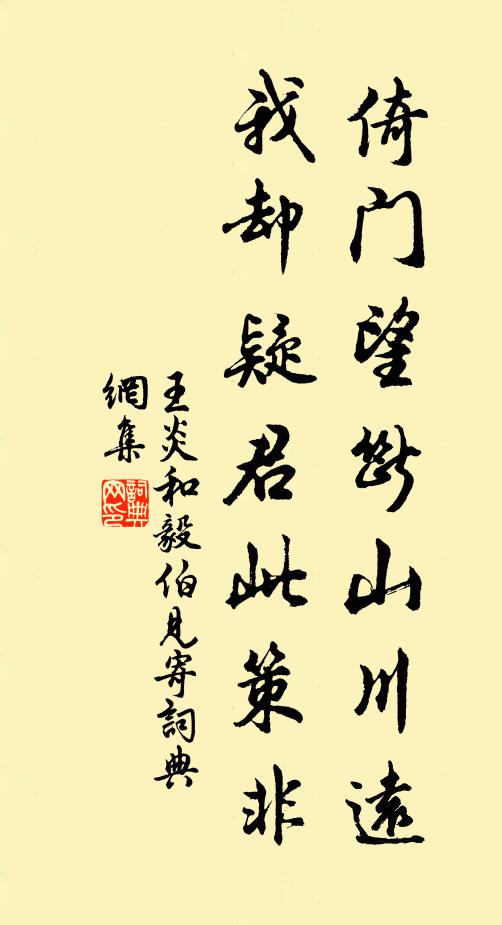 倚门望断山川遠
我却疑君此策非
王炎和毅伯見寄詞典
網集
詞典
网印